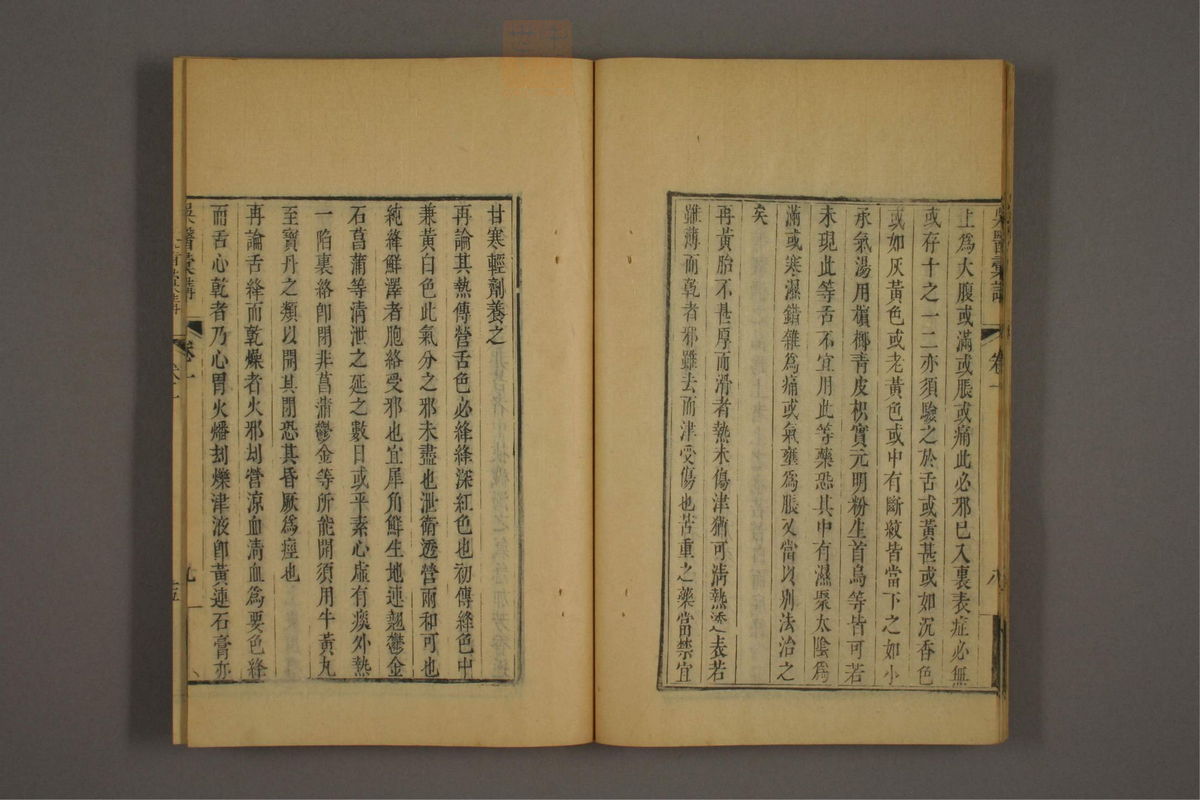 上爲大腹或滿或脹或痛此必邪已入裏表症必無
或存十之一二亦須驗之於舌或黃甚或如沉香色
或如灰黃色或老黃色或中有斷紋皆當下之如小
承氣湯用檳榔青皮枳實元明粉生首烏等皆可若
未現此等舌不宜用此等藥恐其中有濕聚太陰爲
滿或寒濕錯雜爲痛或氣壅爲脹又當以別法治之
矣
再黃胎不甚厚而滑者熱未傷津猶可清熱透表若
雖薄而乾者邪雖去而津受傷也苦重之藥當禁宜
甘寒輕劑養之
再論其熱傳營舌色必絳絳深紅色也初傳絳色中
兼黃白色此氣分之邪未盡也泄衛透營兩和可也
純絳鮮澤者胞絡受邪也宜犀角鮮生地連翹鬱金
石菖蒲等清泄之延之數日或平素心虛有痰外熱
一陷裏絡卽閉非菖蒲鬱金等所能開須用牛黃丸
至寶丹之類以開其閉恐其昏厥爲痙也
再論舌絳而乾燥者火邪刧營涼血清血爲要色絳
而舌心乾者乃心胃火燔刧爍津液卽黃連石膏亦
吳醫彙講
卷一
八
吳醫彙講
卷一
九